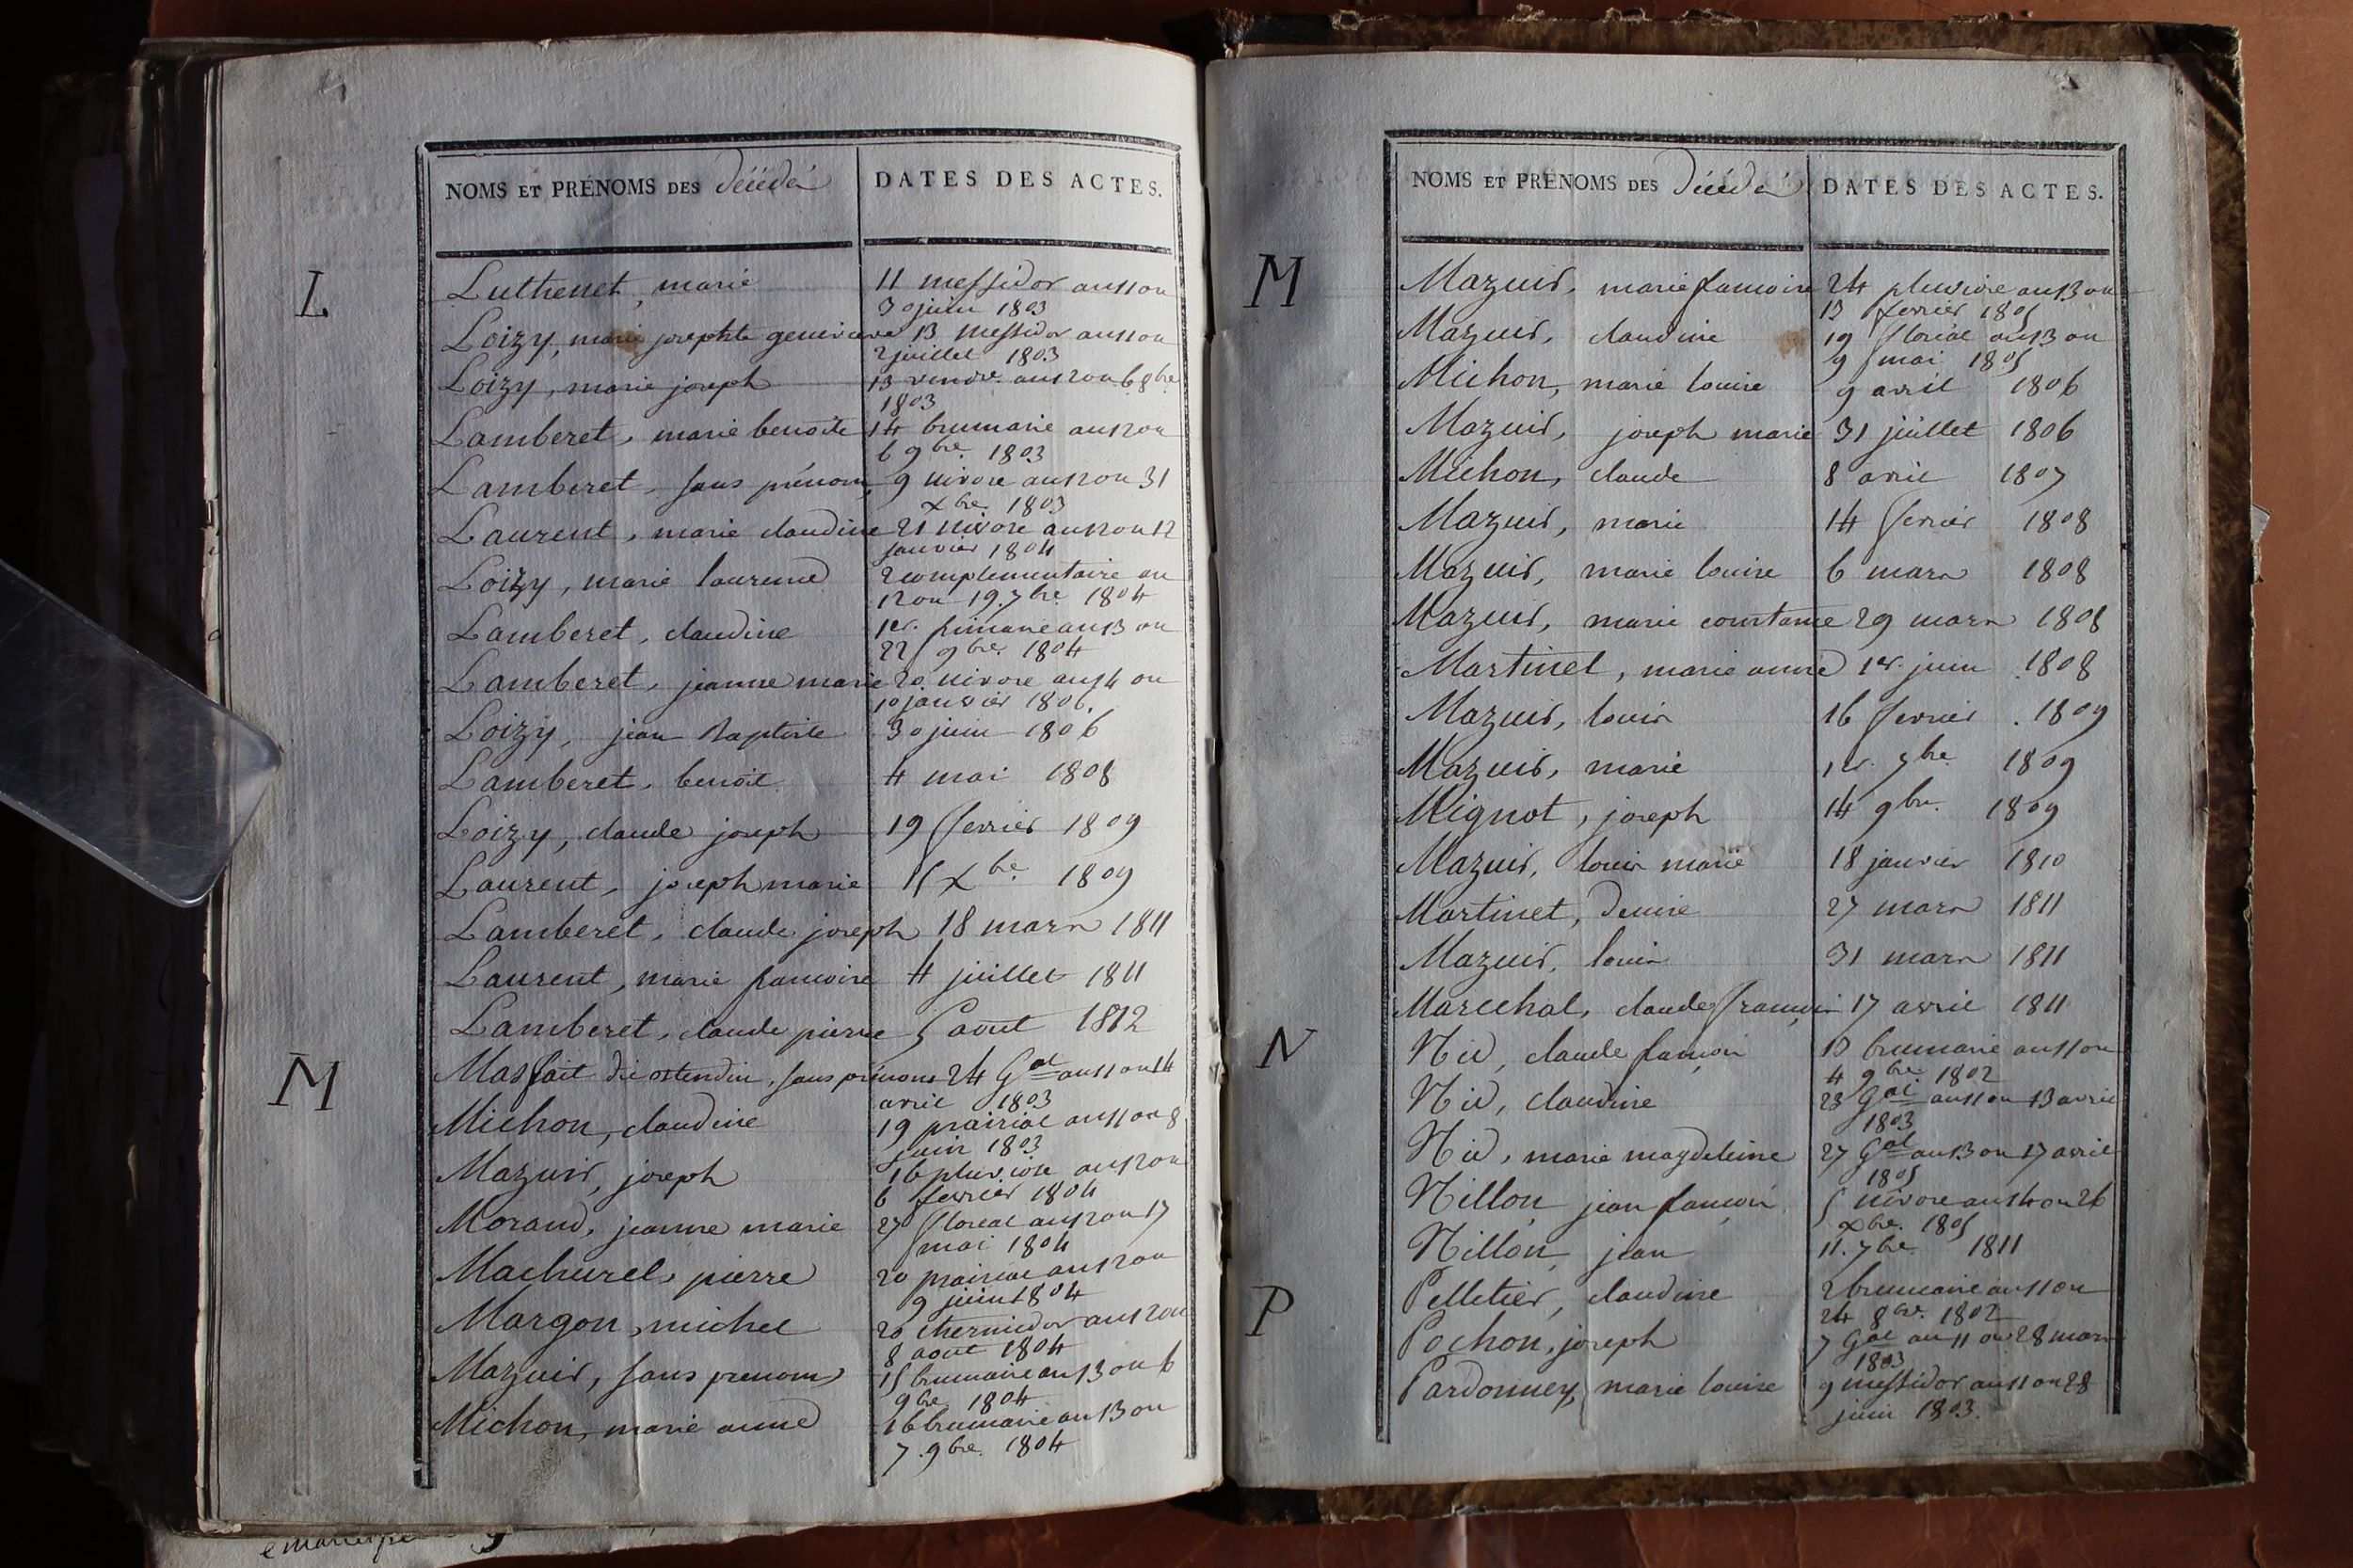 NOMS ET PRÉNOMS DES Décédés DATES DES ACTES.
L
Luthenet, marie 11 messidor an 11 ou
30 juin 1803
Loizy, marie josephte genevieve 13 messidor an 11 ou
2 juillet 1803
Loizy, marie joseph 13 vendre. an 12 ou 6 8bre
1803
Lamberet, marie benoite 14 brumaire an 12 ou
6 9bre. 1803
Lamberet, sans prénom, 9 nivose an 12 ou 31
xbre. 1803
Laurent, marie claudine 21 nivose an 12 ou 12
janvier 1804
Loizy, marie laurence 2 complementaire an
12 ou 19. 7bre. 1804
Lamberet, claudine 1er. frimaire an 13 ou
22 9bre. 1804
Lamberet, jeanne marie 20 nivose an 14 ou
10 janvier 1806.
Loizy, jean Baptiste 30 juin 1806
Lamberet, benoit 4 mai 1808
Loizy, claude joseph 19 fevrier 1809
Laurent, joseph marie 15 xbre. 1809
Lamberet, claude joseph 18 mars 1811
Laurent, marie francoise 4 juillet 1811
Lamberet, claude pierre 5 aout 1812
M
Masfait dit ostendin, sans prénoms 24 Gal an 11 ou 14
avril 1803
Michon, claudine 19 prairial an 11 ou 8
juin 1803
Mazuir, joseph 16 pluviose an 12 ou
6 fevrier 1804
Morand, jeanne marie 27 floreal an 12 ou 17
mai 1804
Machurel, pierre 20 prairial an 12 ou
9 juin 1804
Margon, michel 20 thermidor an 12 ou
8 aout 1804
Mazuir, sans prenoms 15 brumaire an 13 ou 6
9bre 1804
Michon, marie anne 16 brumaire an 13 ou
7. 9bre. 1804
NOMS ET PRÉNOMS DES Décédés DATES DES ACTES.
M
Mazuir, marie francoise 24 pluviose an 13 ou
13 fevrier 1805
Mazuir, claudine 19 floréal an 13 ou
9 mai 1805
Michon, marie louise 9 avril 1806
Mazuir, joseph marie 31 juillet 1806
Michon, claude 8 avril 1807
Mazuir, marie 14 fevrier 1808
Mazuir, marie louise 6 mars 1808
Mazuir, marie constance 29 mars 1808
Martinet, marie anne 1er. juin 1808
Mazuir, louis 16 fevrier . 1809
Mazuir, marie 1er. 7bre 1809
Mignot, joseph 14 9bre. 1809
Mazuir, louis marie 18 janvier 1810
Martinet, denise 27 mars 1811
Mazuir, louis 31 mars 1811
Marechal, claude françois 17 avril 1811
N
Nid, claude françois 13 brumaire an 11 ou
4 9bre 1802
Nid, claudine 23 Gal an 11 ou 13 avril
1803
Nid, marie magdeleine 27 Gal an 13 ou 17 avril
1805
Nillon, jean françois 5 nivose an 14 ou 26
xbre. 1805
Nillon, jean 11. 7bre 1811
P
Pelletier, claudine 2 brumaire an 11 ou
24 8bre. 1802
Pochon, joseph 7 Gal an 11 ou 28 mars
1803
Pardonney, marie louise 9 messidor an 11 ou 28
juin 1803.